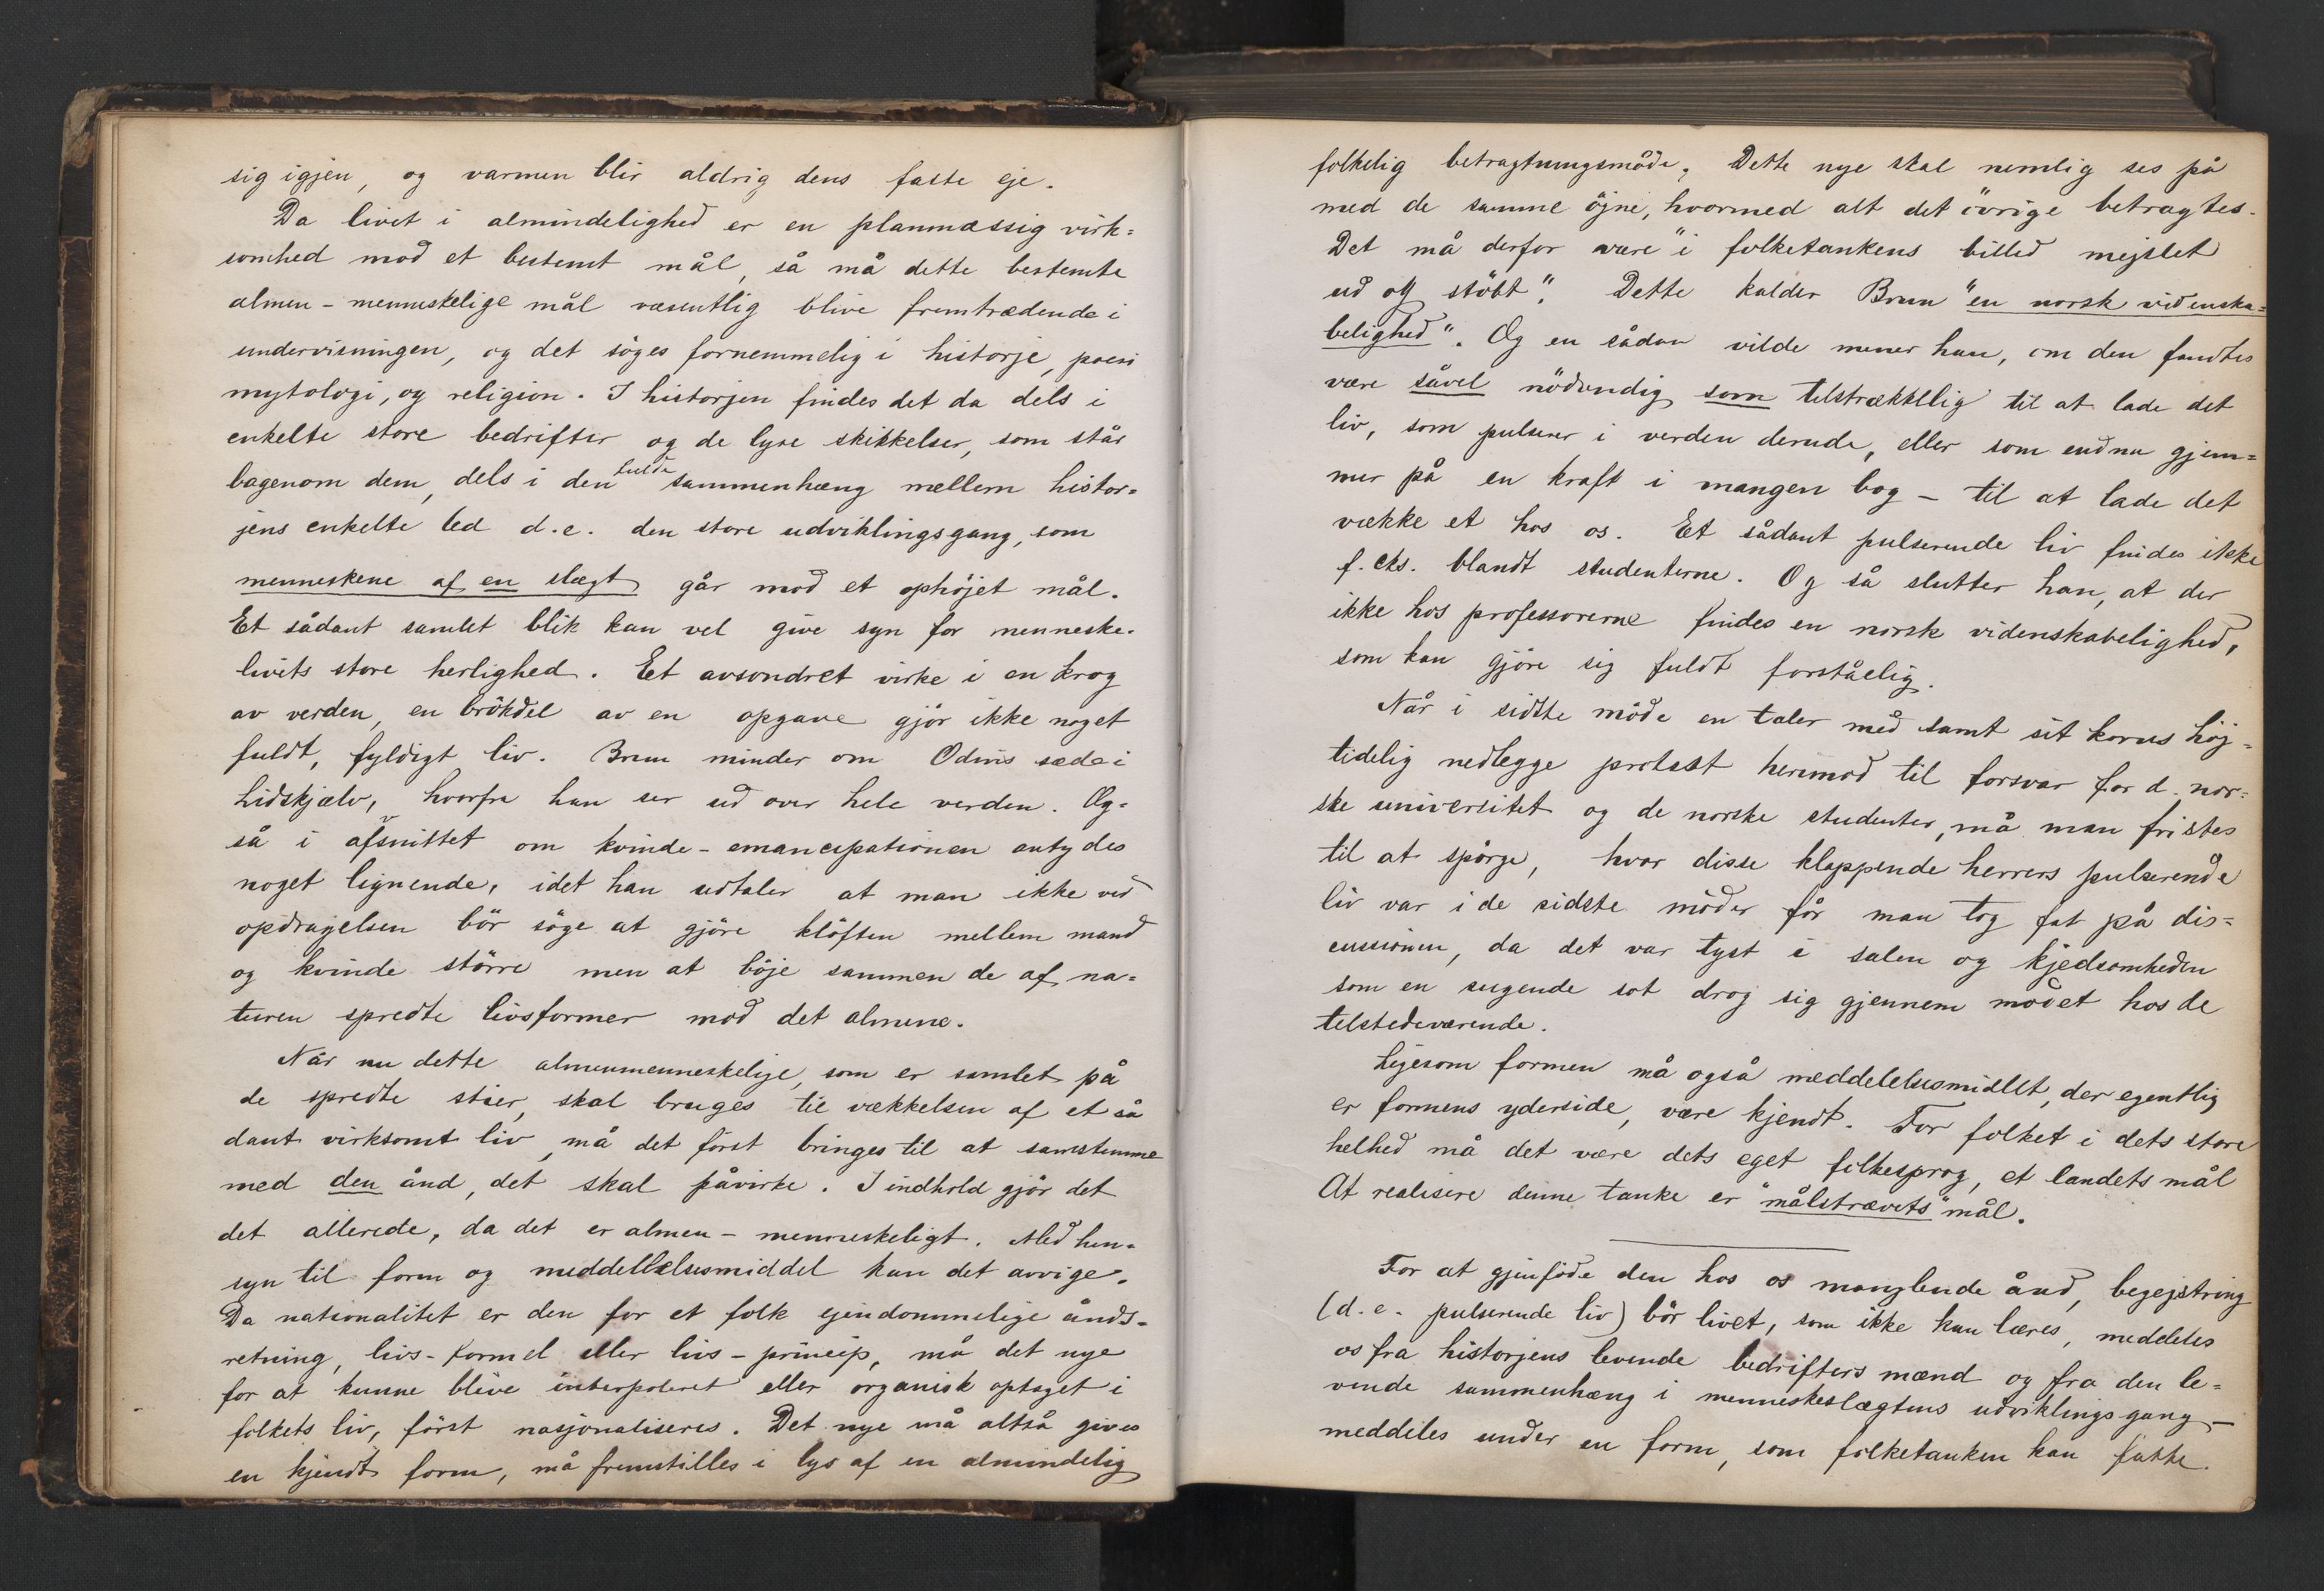 sig igjen, og varmen blir aldrig dens faste eje.
Da livet i almindelighed er en planmæssig virk=
somhed mod et bestemt mål, så må dette bestemte
almen-menneskelige mål væsentlig blive fremtrædende i
undervisningen, og det söges fornemmelig i historje, poesi
mytologi, og religion. I historjen findes det da dels i
enkelte store bedrifter og de lyse skikkelser, som står
bagenom dem, dels i den fulde sammenhæng mellem histor=
jens enkelte led d.e. den store udviklingsgang, som
menneskene af en slægt går mod et ophöjet mål.
Et sådant samlet blik kan vel give syn for menneske-
livets store herlighed. Eet avsondret virke i en krog
av verden, en brökdel av en opgave gjör ikke noget
fuldt, fyldigt liv. Brun minder om Odins sæde i
hidskjælv, hvorfra han ser ud over hele verden. Og=
så i afsnittet om kvinde-emancipationen antydes
noget lignende, idet han udtaler at man ikke ved
opdragelsen bör söge at gjöre klöften mellem mand
og kvinde större men at böje sammen de af na=
turen spredte livsformer mod det almene.
Når nu dette almenmenneskelige, som er samlet på
de spredte stier, skal bruges til vækkelsen af et så
dant virksomt liv, må det först bringes til at samstemme
med den ånd, det skal påvirke. I indhold gjör det
det allerede, da det er almen-menneskeligt. Med hen-
syn til form og meddellelsesmiddel kan det avvige.
Da nationalitet er den for et folk ejendommelige ånds-
retning, livs-formel eller livs-princip, må det nye
for at kunne blive interpoleret eller organisk optaget i
folkets liv, först nasjonaliseres. Det nye må altså gives
en kjendt form, må fremstilles i lys af en almindelig
folkelig betragtningsmåde. Dette nye skal nemlig ses på
med de samme öjne, hvormed alt det övrige betragtes.
Det må derfor være "i folketankens billed mejslet
ud og stöbt". Dette kalder Brun "en norsk videnska=
belighed". Og en sådan vilde mener han, om den fandtes
være såvel nödvendig som tilstrækkelig til at lade det
liv, som pulserer i verden derude, eller som endnu gjem=
mer på en kraft i mangen bog - til at lade det
vække et hos os. Et sådant pulserende liv findes ikke
f. eks. blandt studenterne. Og så slutter han, at der
ikke hos professorerne findes en norsk videnskabelighed,
som kan gjöre sig fuldt forståelig.
Når i sidste möde en taler med samt sit korus höj=
tidelig nedlegge protest herimod til forsvar for d. nor=
ske universitet og de norske studenter, må man fristes
til at spörge, hvor disse klappende herrers pulserende
liv var i de sidste möder för man tog fat på dis=
cussionen, da det var tyst i salen og kjedsomheden
som en sugende sot drog sig gjennem mödet hos de
tilstedeværende.
Ligesom formen må også meddelelsesmidlet, der egentlig
er formens yderside, være kjendt. For folket i dets store
helhed må det være dets eget folkesprog, et landets mål
At realisere denne tanke er "målstrævets" mål.
For at gjenföde den hos os manglende ånd, begejstring
(d.e. pulserende liv) bör livet, som ikke kan læres, meddeles
os fra historjens levende bedrifters mænd og fra den le=
vende sammenhæng i menneskeslægtens udviklingsgang -
meddeles under en form, som folketanken kan fatte.